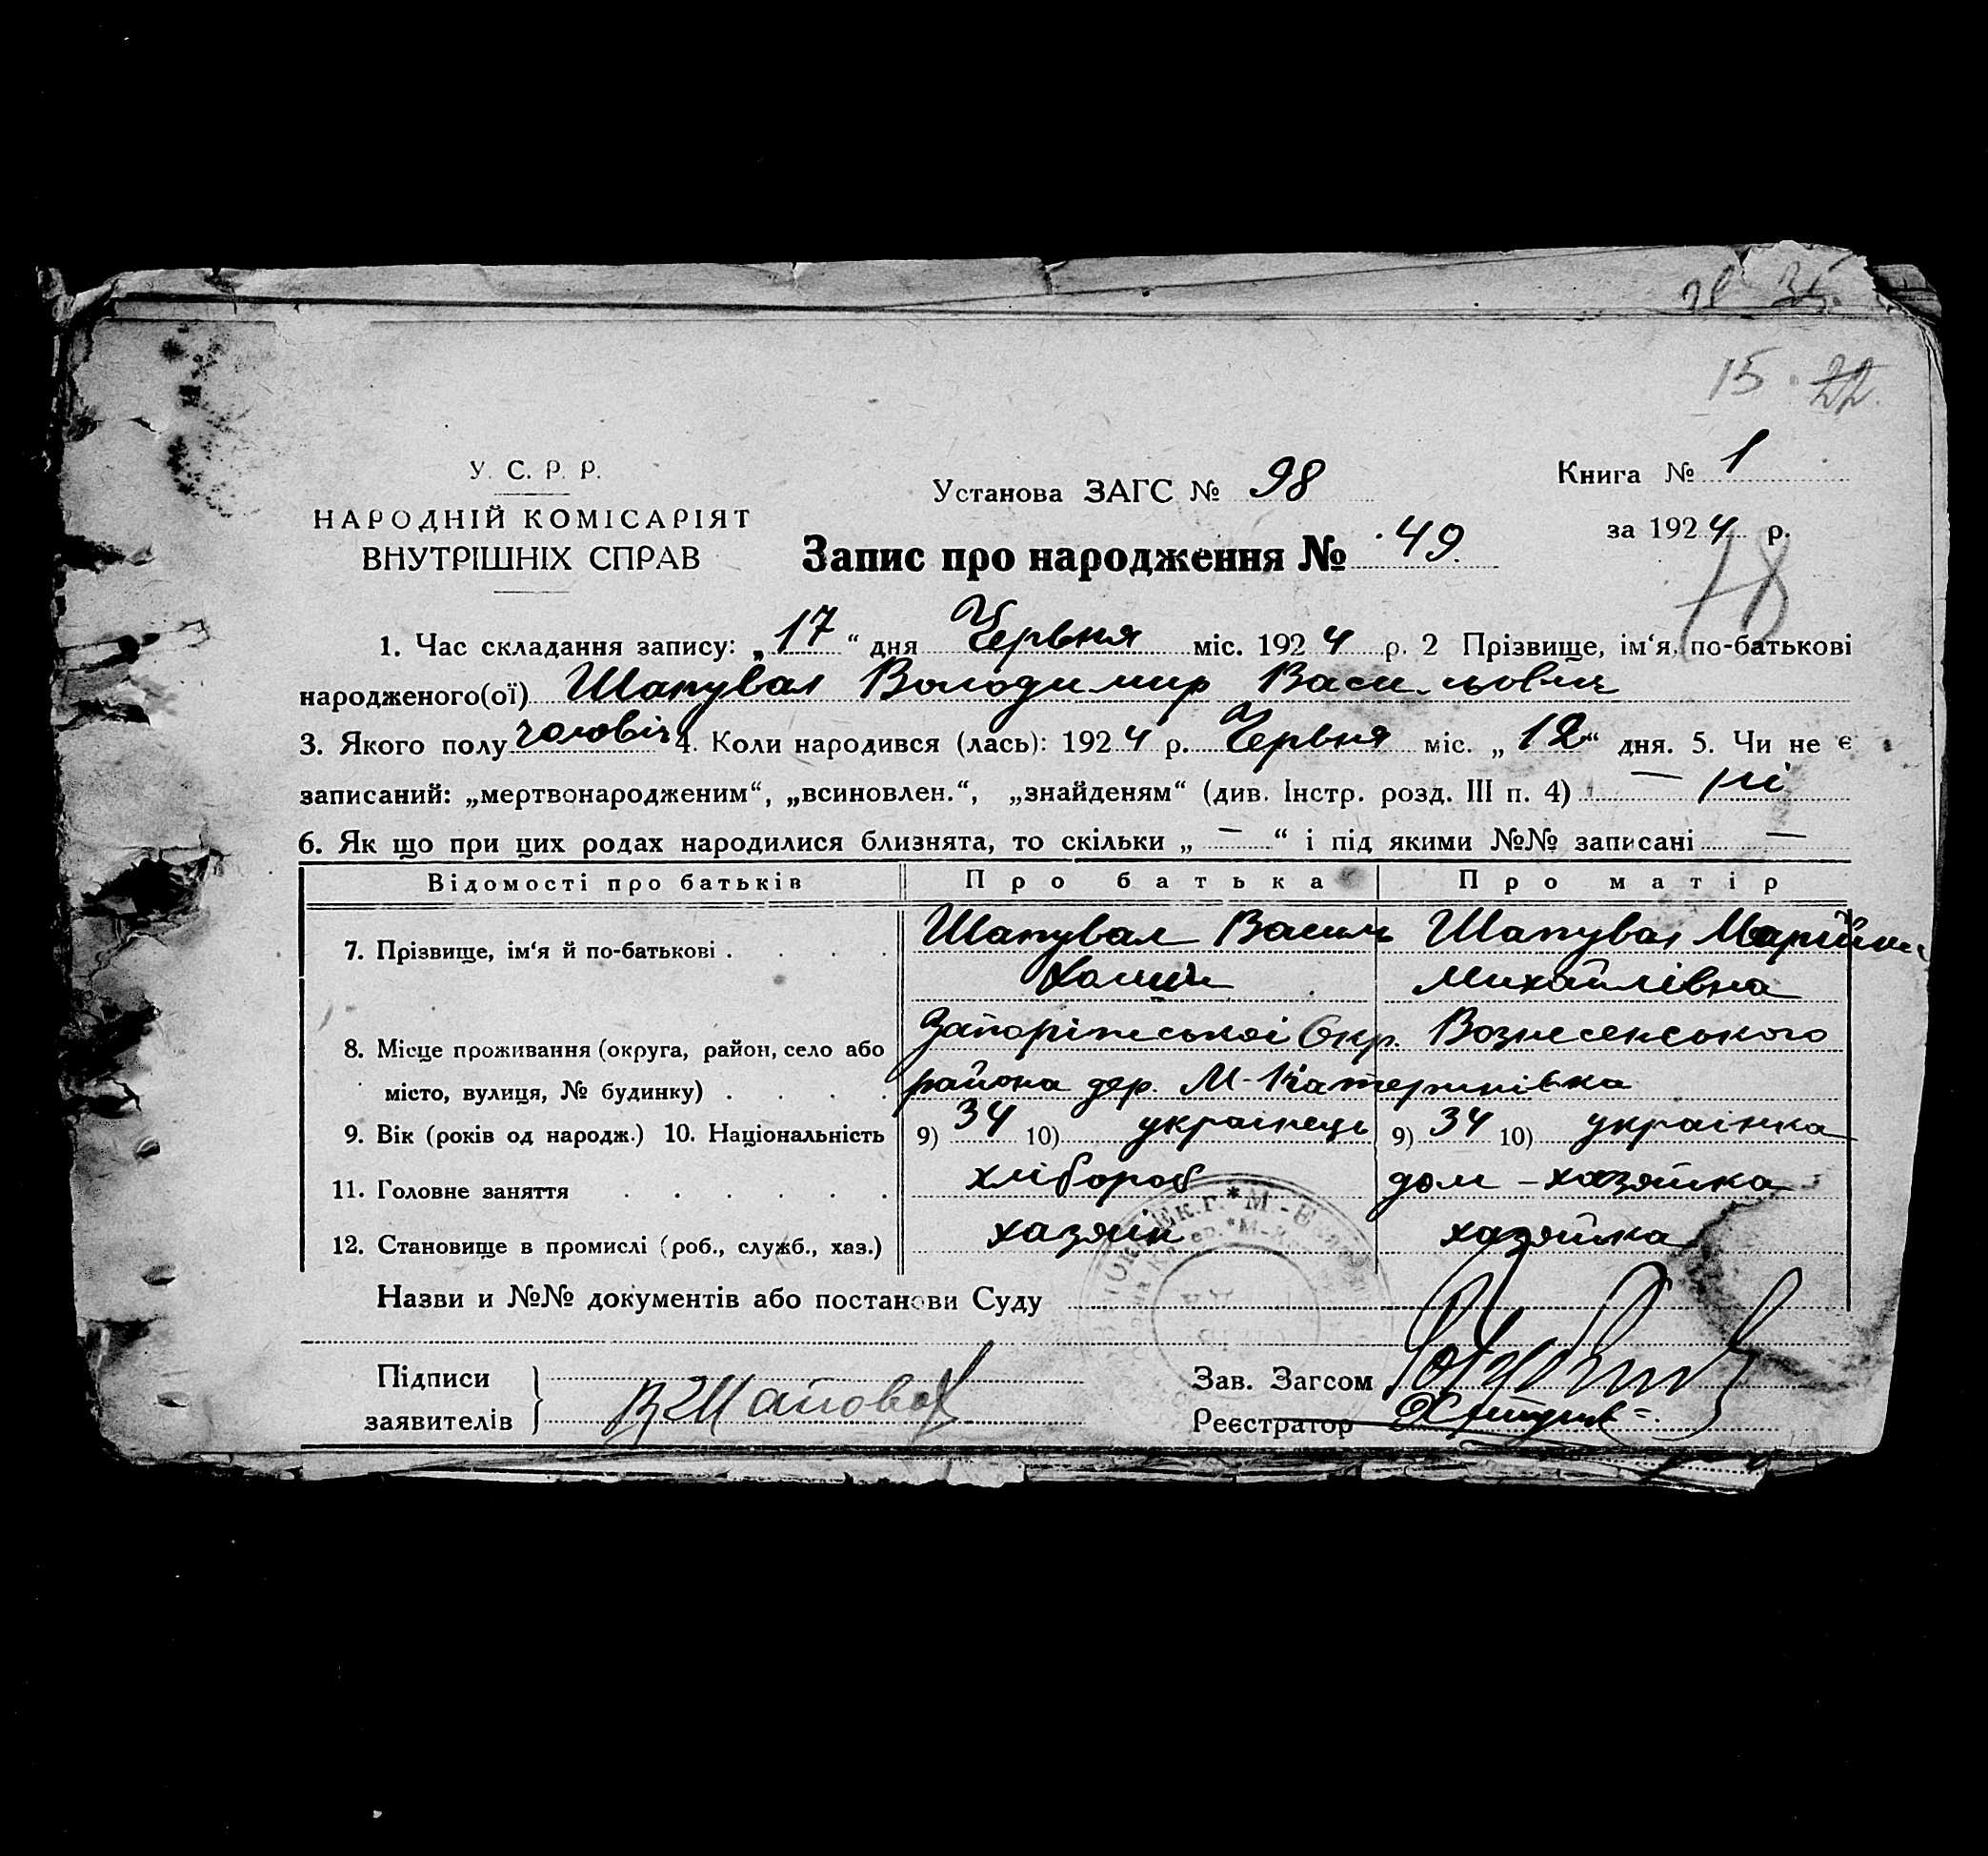 15. 22.
У. С. Р. Р.
НАРОДНІЙ КОМІСАРІЯТ
ВНУТРІШНІХ СПРАВ
Установа ЗАГС № 98
Книга № 1
за 1924 р.
Запис про народження № 49.
18
1. Час складання запису: „17“ дня Червня міс. 1924 р. 2 Прізвище, ім‘я, по-батькові
народженого(ої) Шапувал Володимир Васильович
3. Якого полу чоловіч 4. Коли народився (лась): 1924 р. Червня міс. „12“ дня. 5. Чи не є
записаний: „мертвонародженим“, „всиновлен.“, „знайденям“ (див. Інстр. розд. III п. 4) — ні
6. Як що при цих родах народилися близнята, то скільки „—“ і під якими №№ записані —
Відомості про батьків Про батька Про матір
7. Прізвище, ім‘я й по-батькові . . . . Шапувал Василь Шапувал
Михайлівна
8. Місце проживання (округа, район, село або Запоріжської Окр. Вознесенського
місто, вулиця, № будинку) . . . . района дер. М-Катеринівка
9. Вік (років од народж.) 10. Національність 9) 34 10) українець 9) 34 10) українка
11. Головне заняття . . . . . . хлібороб дом-хазяйка
12. Становище в промислі (роб., служб., хаз.) хазяін хазяйка
Назви и №№ документів або постанови Суду
Підписи
заявителів
В Шаповал
Зав. Загсом
Реєстратор